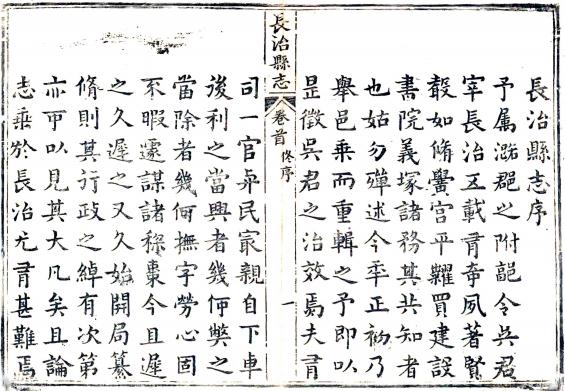 長治縣志序
予属潞郡之附郭令吳君
宰長治五載有竒夙著賢
聲如脩黌宫平糶買建設
書院義塚諸務其共知者
也姑勿殫述今年正初乃
舉邑乗而重輯之予即以
是徵吳君之治效焉夫有
長治縣志
卷首
佟序
一
司一官與民㝡親自下車
後利之當興者幾何獘之
當除者幾何撫字勞心固
不暇遽謀諸梨棗今且遲
之久遲之又久始開局纂
脩則其行政之綽有次第
亦可以見其大凡矣且論
志乗於長治尤有甚難焉